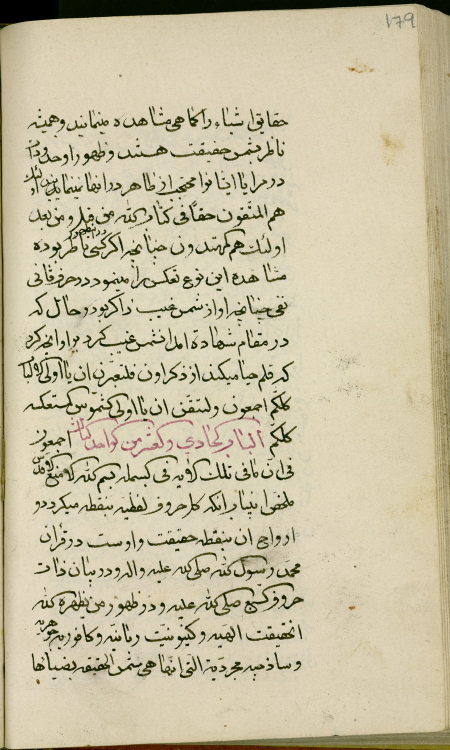 179
حقایق اشیاء را کما هی مشاهده مینمایند و همیشه
ناظر بشمس حقیقت هستند و ظهور او
در مرایا ایشانرا محتجب از ظاهر در انها نمینماید
هم المتقون حقا فی کتاب الله من قبل و من بعد
اولئک هم المهتدون چنانچه اگر کسی ناظر بوده
مشاهده این نوع تعکس را مینمود در حرف ثانی
نفی چنانچه او از شمس غیب ذاکر بود و حال انکه
در مقام شهادة امد انشمس غیب کرد با او انچه کرد
که قلم حیا میکند از ذکر اون فلتعتبرن ان یا اولی
کلکم اجمعون ولتتقن ان یا اولی الشموس المستعکسة
کلکم اجمعون الباب الحادي والعشر من الواحد الثالث
فی ان ما فی تلک الایة فی البسملة بسم الله الامنع الاقدس
ملخص این باب انکه کل حروف لفظیه بنقطه میگردد و
ارواح ان بنقطه حقیقت و اوست در قران
محمد رسول الله صلی الله علیه و اله و در بیان ذات
حروف السبع صلی الله علیه و در ظهور من یظهره الله
انحقیقت الهیه و کینونیت ربانیه و کافوریه جوهریه
و ساذجیه مجردیة التی انها هی شمس الحقیقة بضیائها